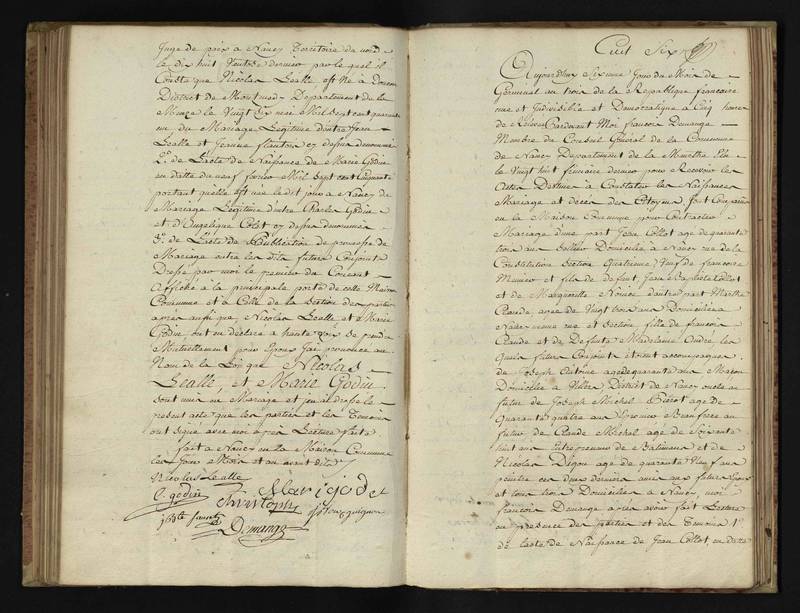 Juge de paix a Nancy Territoire du nord
le dix huit Ventose dernier par le quel il
Conste que Nicolas Lealle, est Né a
District de Montmedi Departement de la
Meuse le Vingt Six Mil Sept cent quarante
un du Mariage Legitime d'entre Jean
Lealle et Jeanne cy dessus denommés
2°. de L'acte de Naissance de Marie Godin
en datte du neuf fevrier Mil Sept cent Cinquante
portant quelle est née le dit jour a Nancy du
Mariage Legitime d'entre Charles Godin
et d'Angelique Colet cy dessus denommés
3°. de L'acte de Publication de promesse de
Mariage entre les dits futurs Conjoints
Dressé par moi le premier du Courant
Affiché a la principale porte de cette Maison
Commune et a Celle de la Section des parties
apres aussi que Nicolas Lealle et Marie
Godin ont eu déclaré a haute voix se prendre
Mutuellement pour Epoux J'ai prononcé au
Nom de la Loi que Nicolas
Lealle, et Marie Godin
sont unis en Mariage et j'en ai dressé le
present acte que les parties et les Temoins
ont signé avec moi apres Lecture faite
fait a Nancy en la Maison Commune
les Jour Mois et an avant dits
Nicolas Lealle
C. godin Marigodet
Christophe
Demange
Cent Six
Aujourdhuy Sixieme Jour du Mois de
Germinal an trois de la Republique francoise
une et Indivisible et Democratique a Cinq heures
de Relevée Pardevant Moi francois Demange
Membre du Conseil Général de la Commune
de Nancy Departement de la Meurthe Elu
le Vingt huit frimaire dernier pour Recevoir les
Actes Destinés a Constater les Naissances
Mariage et deces des Citoyens, Sont Comparus
en la Maison Commune pour Contracter
Mariage d'une part Jean Collot agé de quarante
trois ans Domicilié a Nancy rue de la
Constitution Section Quatrieme, Veuf de francoise
Munier et fils de defunt Jean Baptiste Collot
et de Marguerite d'autre part Marthe
Claude, agée de Vingt trois ans Domiciliée a
Nancy meme rue et Section, fille de francois
Claude et de Deffunte Madelaine Oudré les
Quels futurs Conjoints etoient accompagnés
de Joseph Antoine agé de quarante ans Maçon
Domicilié a Villers District de Nancy oncle au
futur de Joseph Michel Piérot agé de
Quarante quatre ans Beaufrere au
futur de Claude Michel agé de Soixante
huit ans Entrepreneur de Batimens et de
Nicolas Digou agé de quarante Neuf ans
peintre ces deux derniers amis aux futurs Epoux
et tous trois Domiciliés a Nancy moi
francois Demange apres avoir fait Lecture
en presence des parties et des Temoins 1°
de l'acte de Naissance de Jean Collot, en datte